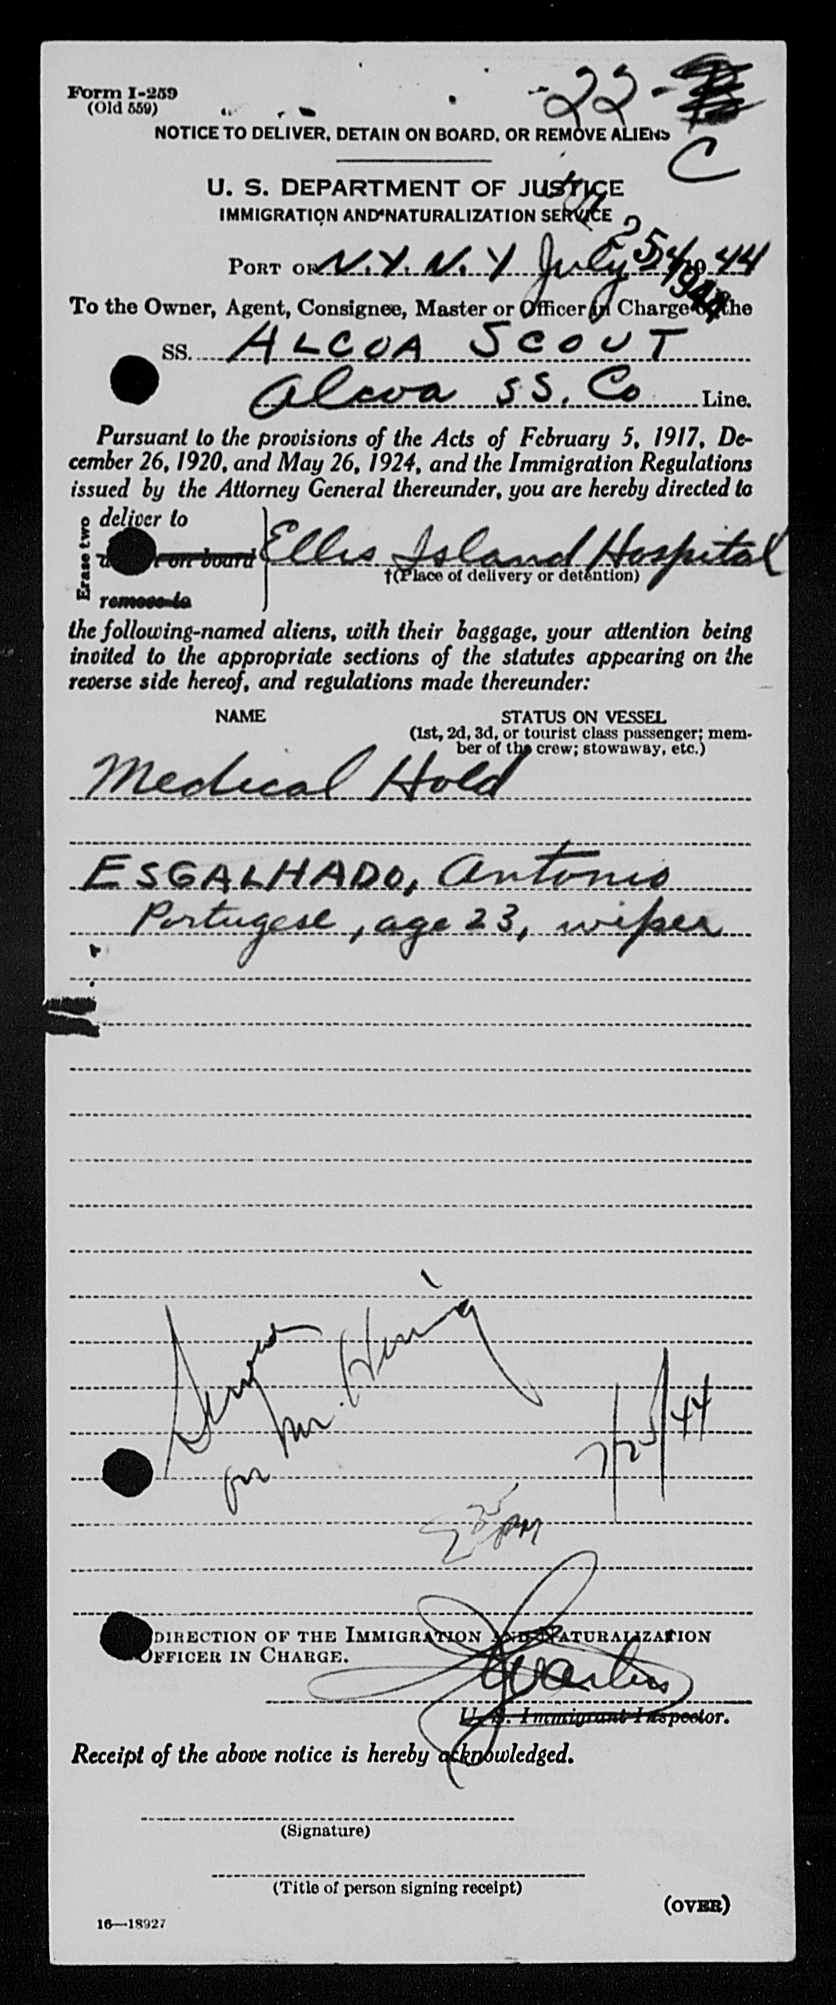 Form I-259
(Old 559)
22-
C
NOTICE TO DELIVER, DETAIN ON BOARD, OR REMOVE ALIENS
U. S. DEPARTMENT OF JUSTICE
IMMIGRATION AND NATURALIZATION SERVICE
PORT OF N.Y. N.Y July 25, 1944
To the Owner, Agent, Consignee, Master or Officer in Charge of the
SS. ALCOA SCOUT
Alcoa SS. Co Line.
Pursuant to the provisions of the Acts of February 5, 1917, De-
cember 26, 1920, and May 26, 1924, and the Immigration Regulations
issued by the Attorney General thereunder, you are hereby directed to
Erase two
deliver to
on board
remove to
Ellis Island Hospital
†(Place of delivery or detention)
the following-named aliens, with their baggage, your attention being
invited to the appropriate sections of the statutes appearing on the
reverse side hereof, and regulations made thereunder:
NAME STATUS ON VESSEL
(1st, 2d, 3d, or tourist class passenger; mem-
ber of the crew; stowaway, etc.)
Medical Hold
ESGALHADO, Antonio
Portugese, age 23, wiper
Served
on Mr.
7/25/44
PM
DIRECTION OF THE IMMIGRATION AND NATURALIZATION
OFFICER IN CHARGE.
U. S. Immigrant Inspector.
Receipt of the above notice is hereby acknowledged.
(Signature)
(Title of person signing receipt)
(OVER)
16—18927